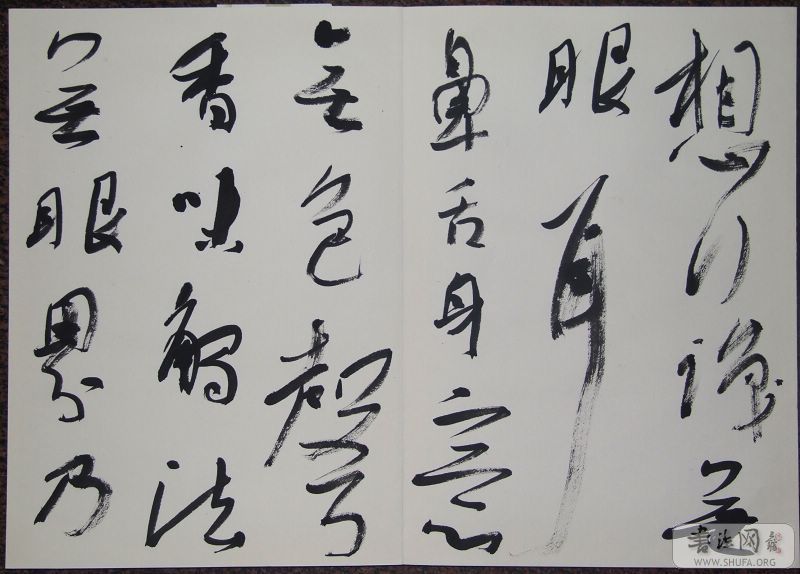 想行識無
眼耳
鼻舌身意
無色聲
香味觸法
無眼界乃
書法网
WWW.SHUFA.ORG